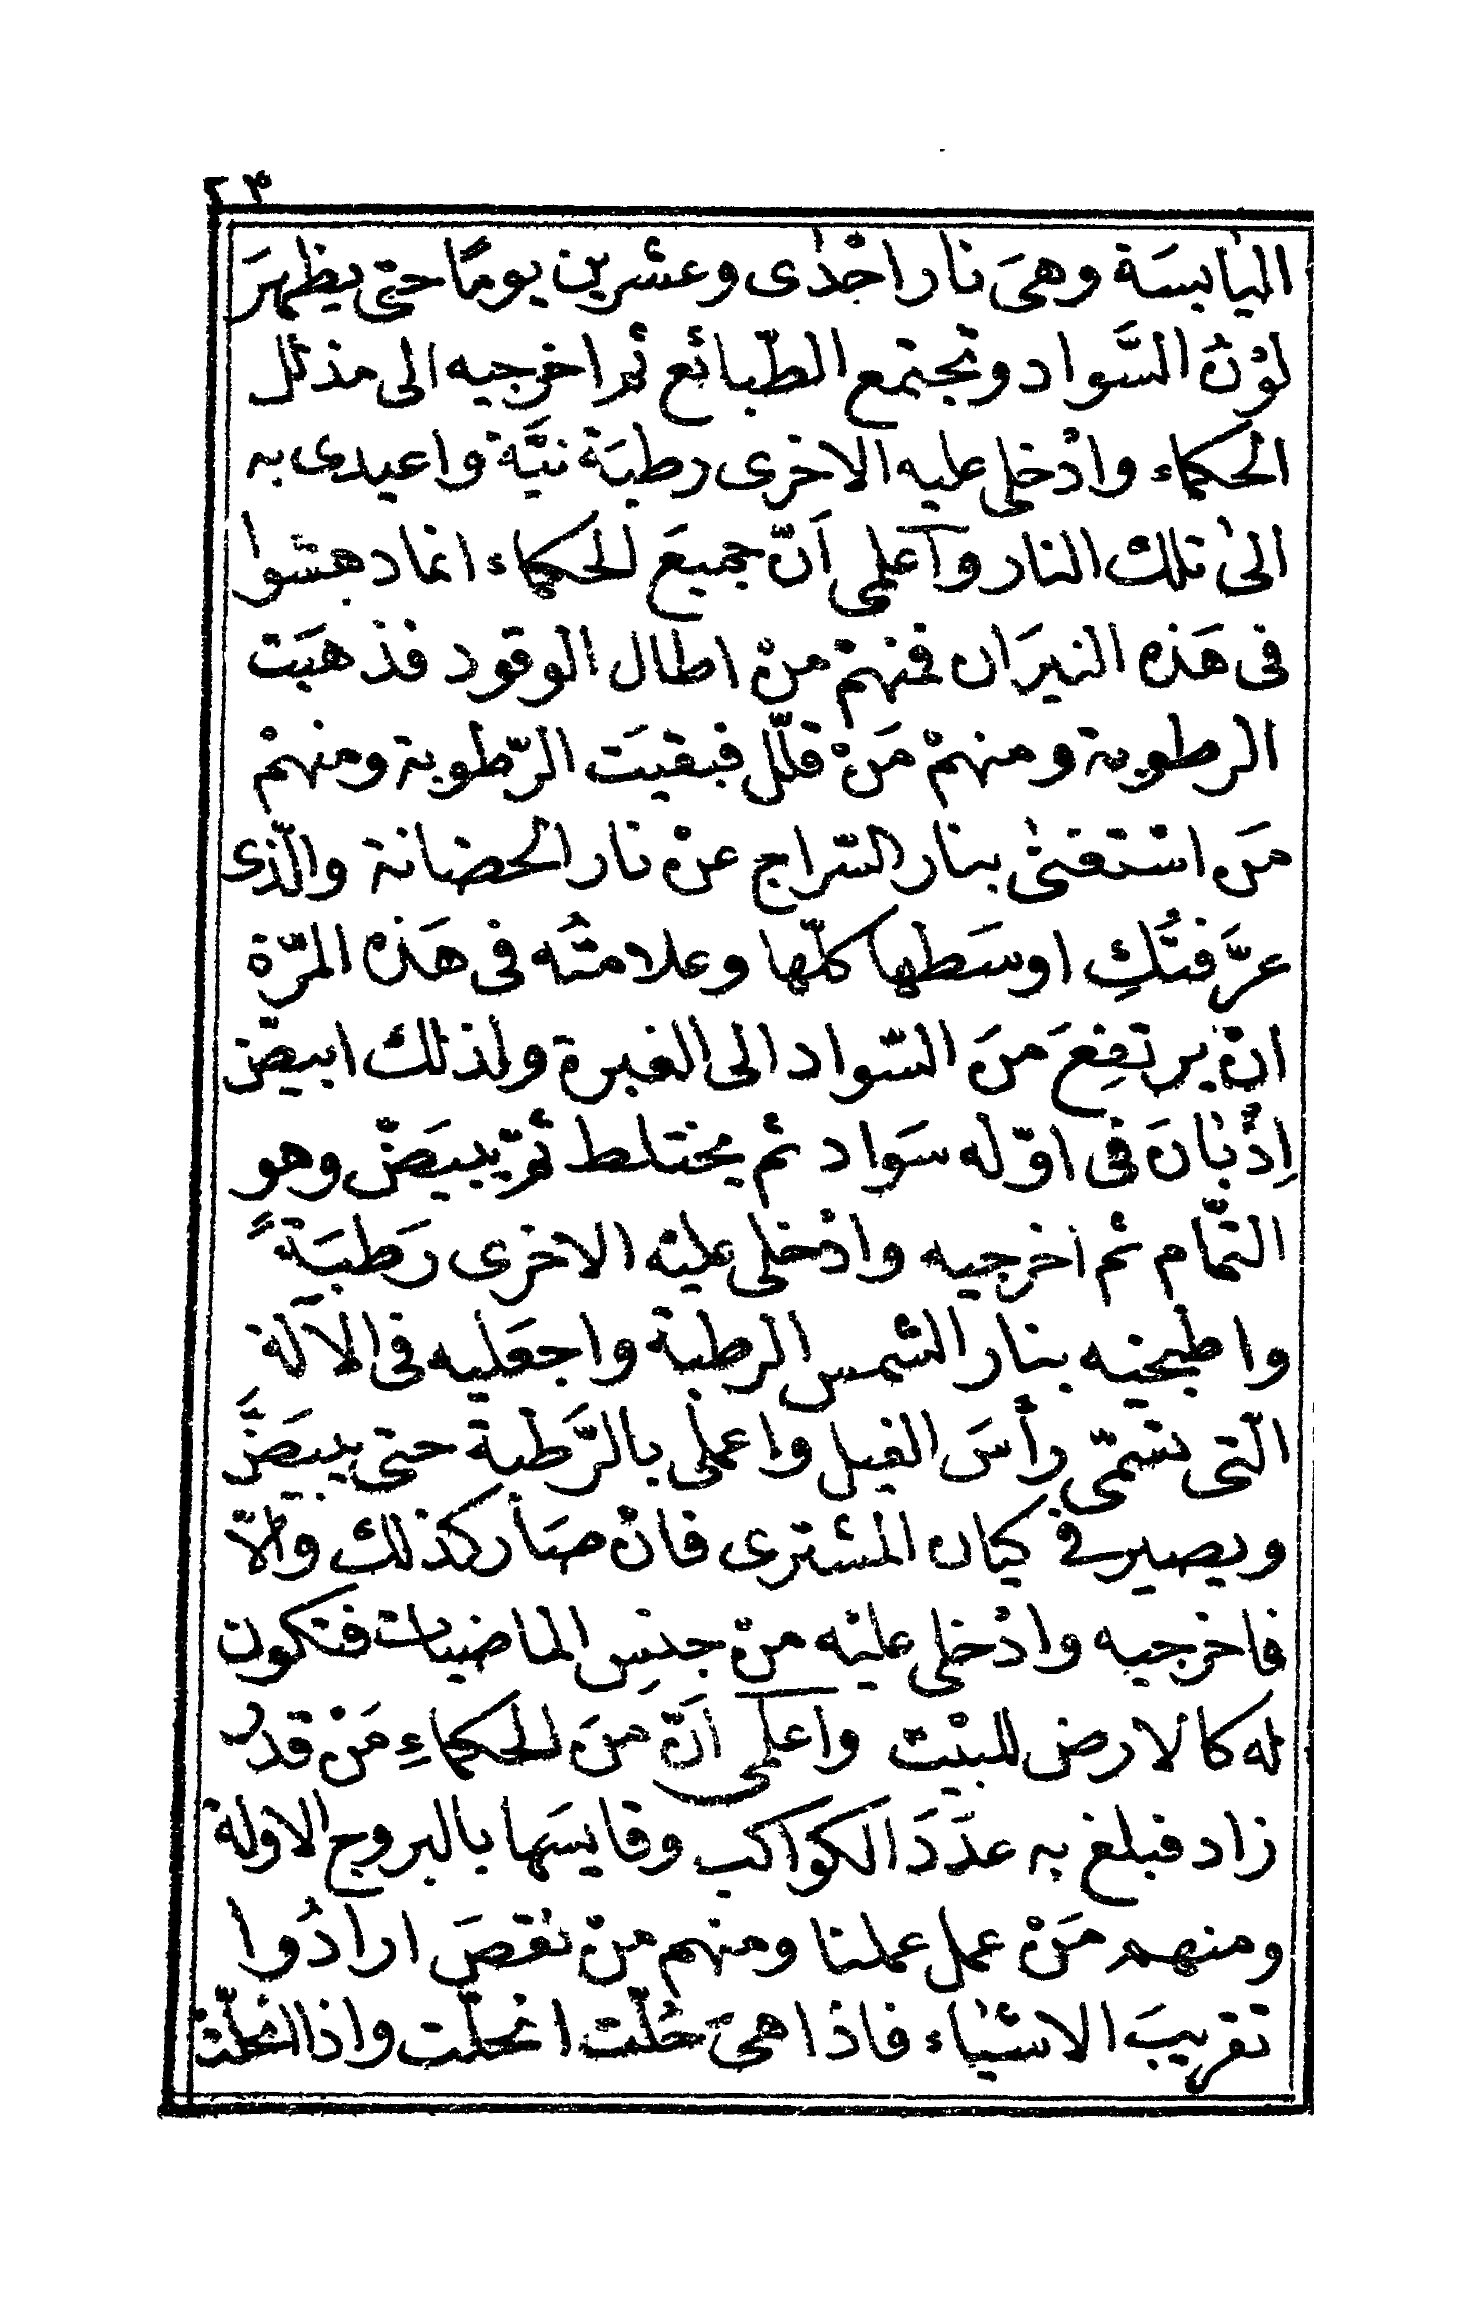 ٢٣
اليابسَة وهىَ نار احْدٰى وعشْرين يومًا حتى يظهرَ
لوْنُ السَّواد وتجتمع الطّبائع ثم اخرجيه الى مذلل
الحكماء وادْخلى عليه الاخرى رطبَة نيَّة واعيدى به
الىٰ تلك النار وَاعلمى اَنّ جميعَ الحكماء انما دهشوا
فى هَذه النيرَان فمنهمْ منْ اطال الوقود فذهبَت
الرطوبة ومنهمْ مَنْ قلّل فبقيَت الرّطوبة ومنهمْ
مَن اسْتغنىٰ بنار السّراج عنْ نار الحضانة والّذى
عرَّفتُكِ اوسَطها كلّها وعلامتُه فى هَذه المرّة
انْ يرتفِعَ منَ السّواد الى الغبرة ولذلك ابيضّ
اِذْ بٰانَ فى اوّله سَواد ثم يختلط ثمّ يبيَضّ وهو
التّمام ثم اخرجيه وادْخلى عليْه الاخرى رَطبَةً
واطبخيْه بنار الشّمس الرطبة واجعَليه فى الآلة
الّتى تسمّى رأسَ الفيل واعملى بالرَّطبة حتى يبيَضَّ
ويصير فى كيان المشترى فانْ صَار كذلك والّا
فاخرجيه وادْخلى عليْه منْ جنسِ الماضيات فتكون
له كالارض للبيْت واعلمى اَنّ منَ الحكماءِ مَنْ قدْ
زاد فبلغ به عدَدَ الكواكب وقايسَها بالبروج الاولة
ومنهم مَنْ عمل عملنا ومنهم منْ نقصَ ارادُوا
تقريبَ الاشيٰاء فاذا هىَ حُلّت انحلّت واذا انحلّت